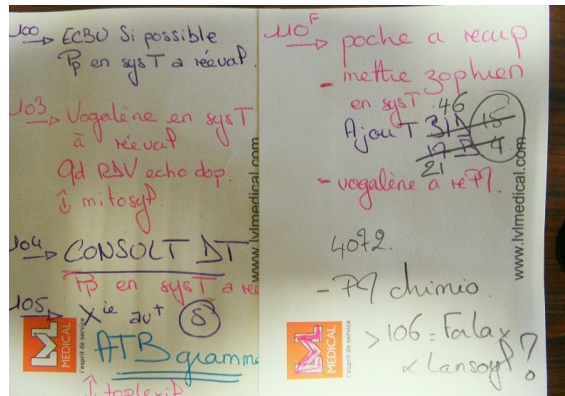 100 → ECBU Si possible
Pp en sys T a réeval.
103 → Vogalène en sys T
à réeval
qd RDV echo dop.
↓ mitosyl
104 → CONSOLT DT
Pp en sys T a ré
105 → X ie av+ 8
ATB gramme
www.lvlmedical.com
LVL
MEDICAL
l'esprit de service
110 F → poche a recup
- mettre zophren
en sys T. 46
Ajout T 31D 15
17 B 4
21
- vogalène a re
4072.
- chimio.
> 106 = Forlax
& Lansoyl ?
www.lvlmedical.com
LVL
MEDICAL
l'esprit de service